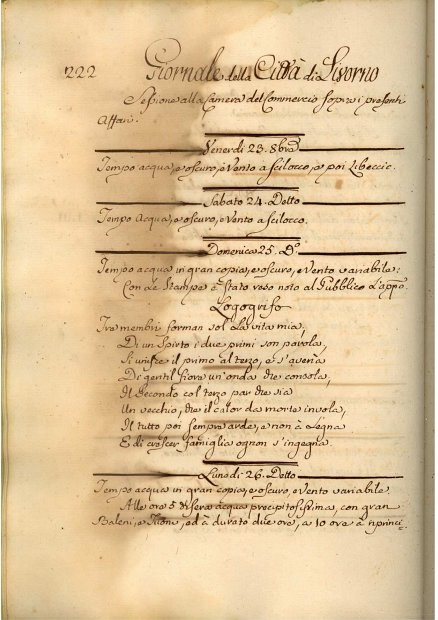 222
Giornale della Città di Livorno
Sessione alla Camera del Commercio sopra i presenti
Affari.
Venerdi 23. 8bre
Tempo acqua, e oscuro, e Vento a Scilocco, e poi Libeccio.
Sabato 24. Detto
Tempo Acqua, e oscuro, e Vento a Scilocco.
Domenica 25. Do
Tempo acqua in gran copia, e oscuro, e Vento variabile:
Con Le Stampe è Stato reso noto al Pubblico L'appo.
Logogrifo
Tre membri forman sol La vita mia;
Di un Spirto i due primi son parola,
Si unisce il primo al terzo, e s'queria
Di gentil fiore un'onda che consola,
Il Secondo col terzo par che sia
Un vecchio, che il calor da morte invola,
Il tutto poi sempre arde, e non à Legna
E di crescer famiglia ognor s'ingegna.
Lunedi 26. Detto
Tempo acqua in gran copia, e oscuro, e Vento variabile.
Alle ore 5 di sera acqua precipitosissima, con gran
Baleni, e Tuoni, ed à durato due ore, a 10 ore à princi: